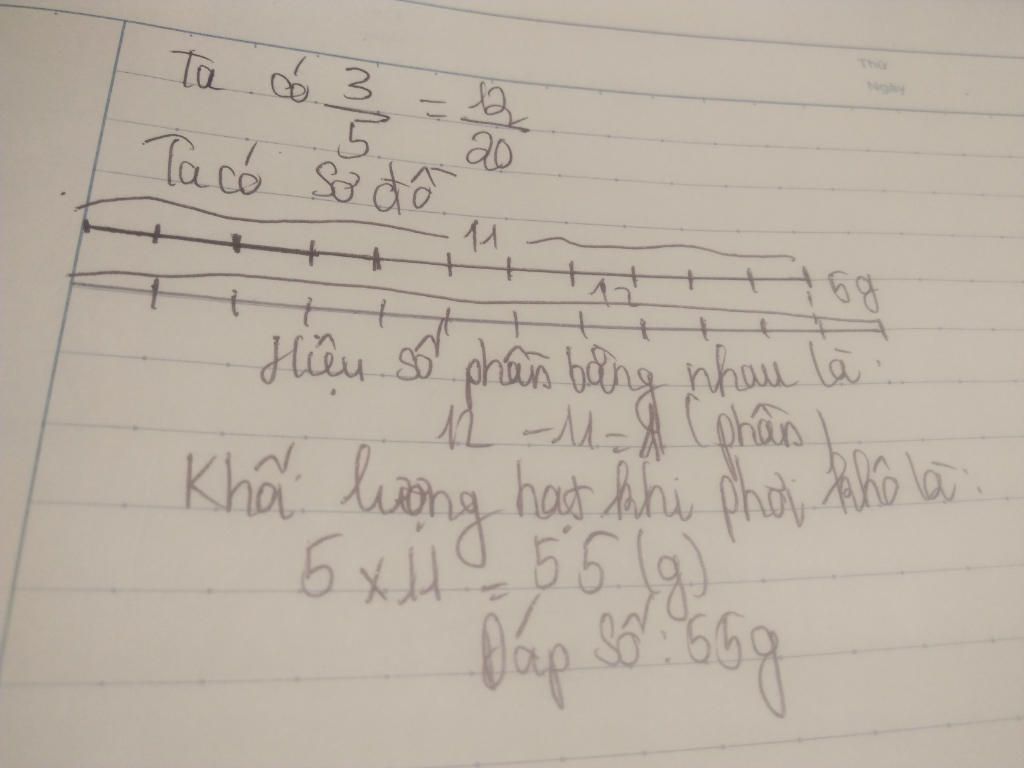 Thứ
Ngày
Ta có 3/5 = 12/20
Ta có sơ đồ
11
12 5g
Hiệu số phần bằng nhau là:
12 - 11 = 1 (phần)
Khối lượng hạt khi phơi khô là:
5 x 11 = 55 (g)
Đáp số: 55g